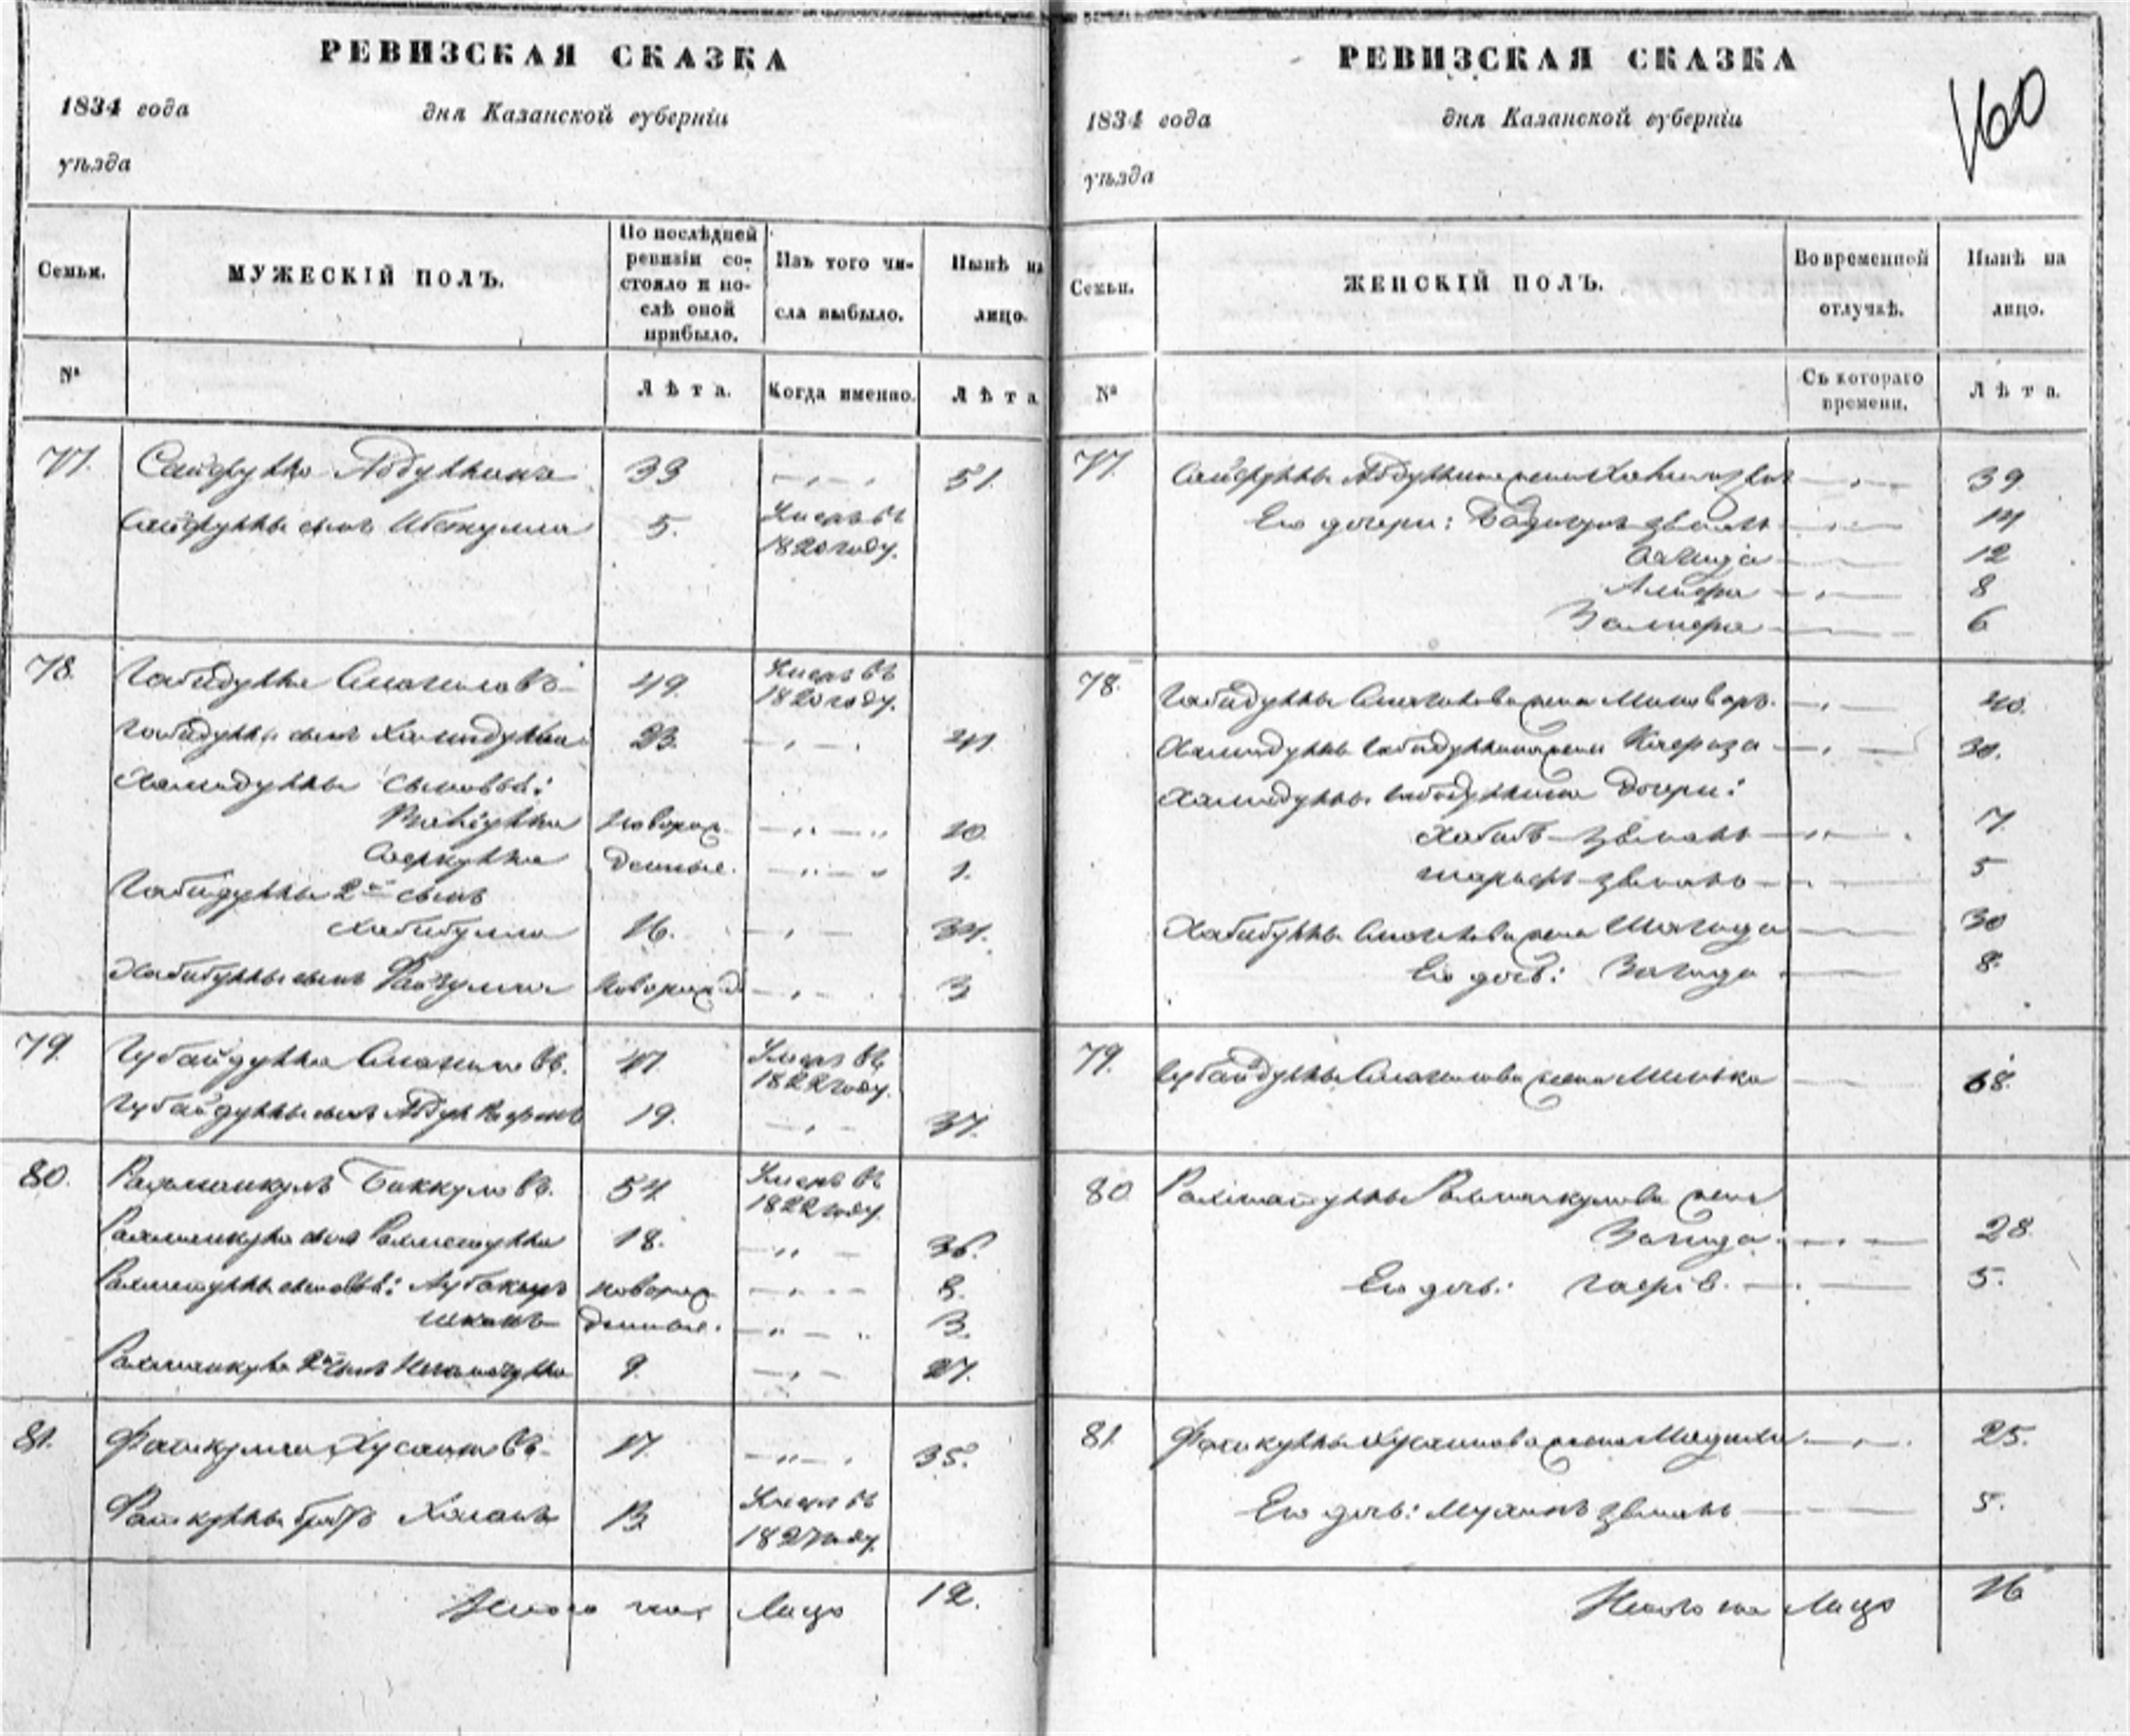 РЕВИЗСКАЯ СКАЗКА
1834 года дня Казанской губерніи
уѣзда
Семьи.
МУЖЕСКІЙ ПОЛЪ.
По послѣдней ревизіи состояло и послѣ оной прибыло.
Изъ того числа выбыло.
Нынѣ на лицо.
№
Лѣта.
Когда именно.
Лѣта
77. Сайфулла Абдуллинъ 33 51.
Сайфуллы сынъ 5. Умеръ въ
1820 году.
78. Габидулла Смагиловъ 49. Умеръ въ
1820 году.
Габидуллы сынъ Хамидулла 23. 41
Хамидуллы сыновья:
новорож 10.
денные. 1.
Габидуллы 2й сынъ
Хабибулла 16. 34.
Хабибуллы сынъ Файзулла новорожд 3
79. Губайдулла Смагиловъ. 47 Умеръ въ
1822 году.
Губайдуллы сынъ 19. 37.
80. Рахманкулъ Баккуловъ. 54 Умеръ въ
1822 году.
Рахманкула сынъ Рахматулла 18. 36.
Рахматуллы сыновья: Абубакиръ новорож 8.
денные. 3.
Рахманкула 2й сынъ Нигаматулла 9. 27.
81. Фаткулла Хусаиновъ 17. 35.
Фаткуллы братъ Хасанъ 13. Умеръ въ
1827 году.
Итого на лицо 12.
РЕВИЗСКАЯ СКАЗКА
160
1834 года дня Казанской губерніи
уѣзда
Семьи.
ЖЕНСКІЙ ПОЛЪ.
Во временной отлучкѣ.
Нынѣ на лицо.
№
Съ котораго времени.
Лѣта.
77. Сайфуллы Абдуллина жена 39.
Его дочери: 14
12
8
6
78. Габидуллы Смагилова жена 40.
Хамидуллы Габидуллина жена 30.
Хамидуллы Габидуллина дочери:
7.
5
Хабибуллы Смагилова жена Шагида 30
Его дочь: Загида 8.
79. Губайдуллы Смагилова жена 68.
80 Рахматуллы Рахманкулова жена
Загида 28.
Его дочь: 5.
81. Фаткуллы Хусаинова жена 25.
Его дочь: 5.
Итого на лицо 16